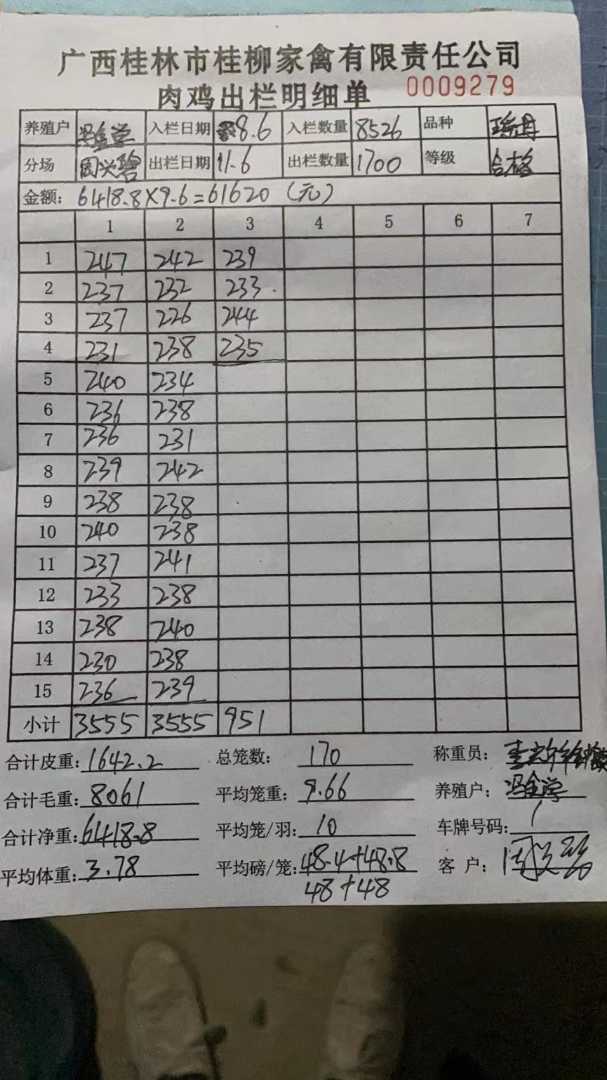 广西桂林市桂柳家禽有限责任公司
肉鸡出栏明细单 0009279
养殖户 入栏日期 8.6 入栏数量 8526 品种
分场 出栏日期 11-6 出栏数量 1700 等级 合格
金额: 6418.8×9.6=61620 (元)
1 2 3 4 5 6 7
1 247 242 239
2 237 232 233.
3 237 226 244
4 231 238 235
5 240 234
6 236 238
7 236 231
8 239 242
9 238 238
10 240 238
11 237 241
12 233 238
13 238 240
14 230 238
15 236 239
小计 3555 3555 951
合计皮重: 1642.2 总笼数: 170 称重员:
合计毛重: 8061 平均笼重: 9.66 养殖户: 冯金学
合计净重: 6418.8 平均笼/羽: 10 车牌号码: /
平均体重: 3.78 平均磅/笼: 48.4+48.8 客户:
48+48